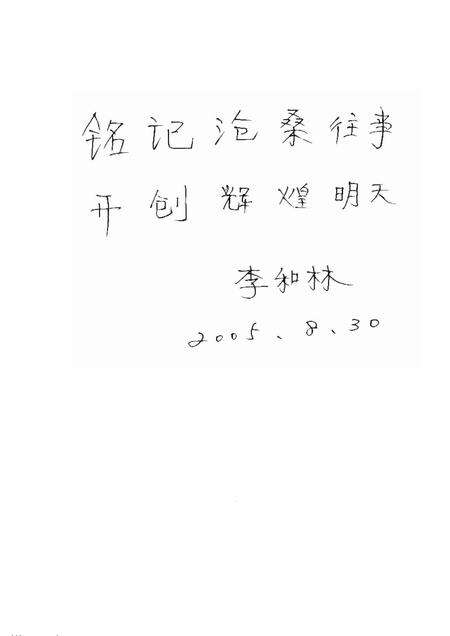 铭记沧桑往事
开创辉煌明天
李和林
2005、8、30